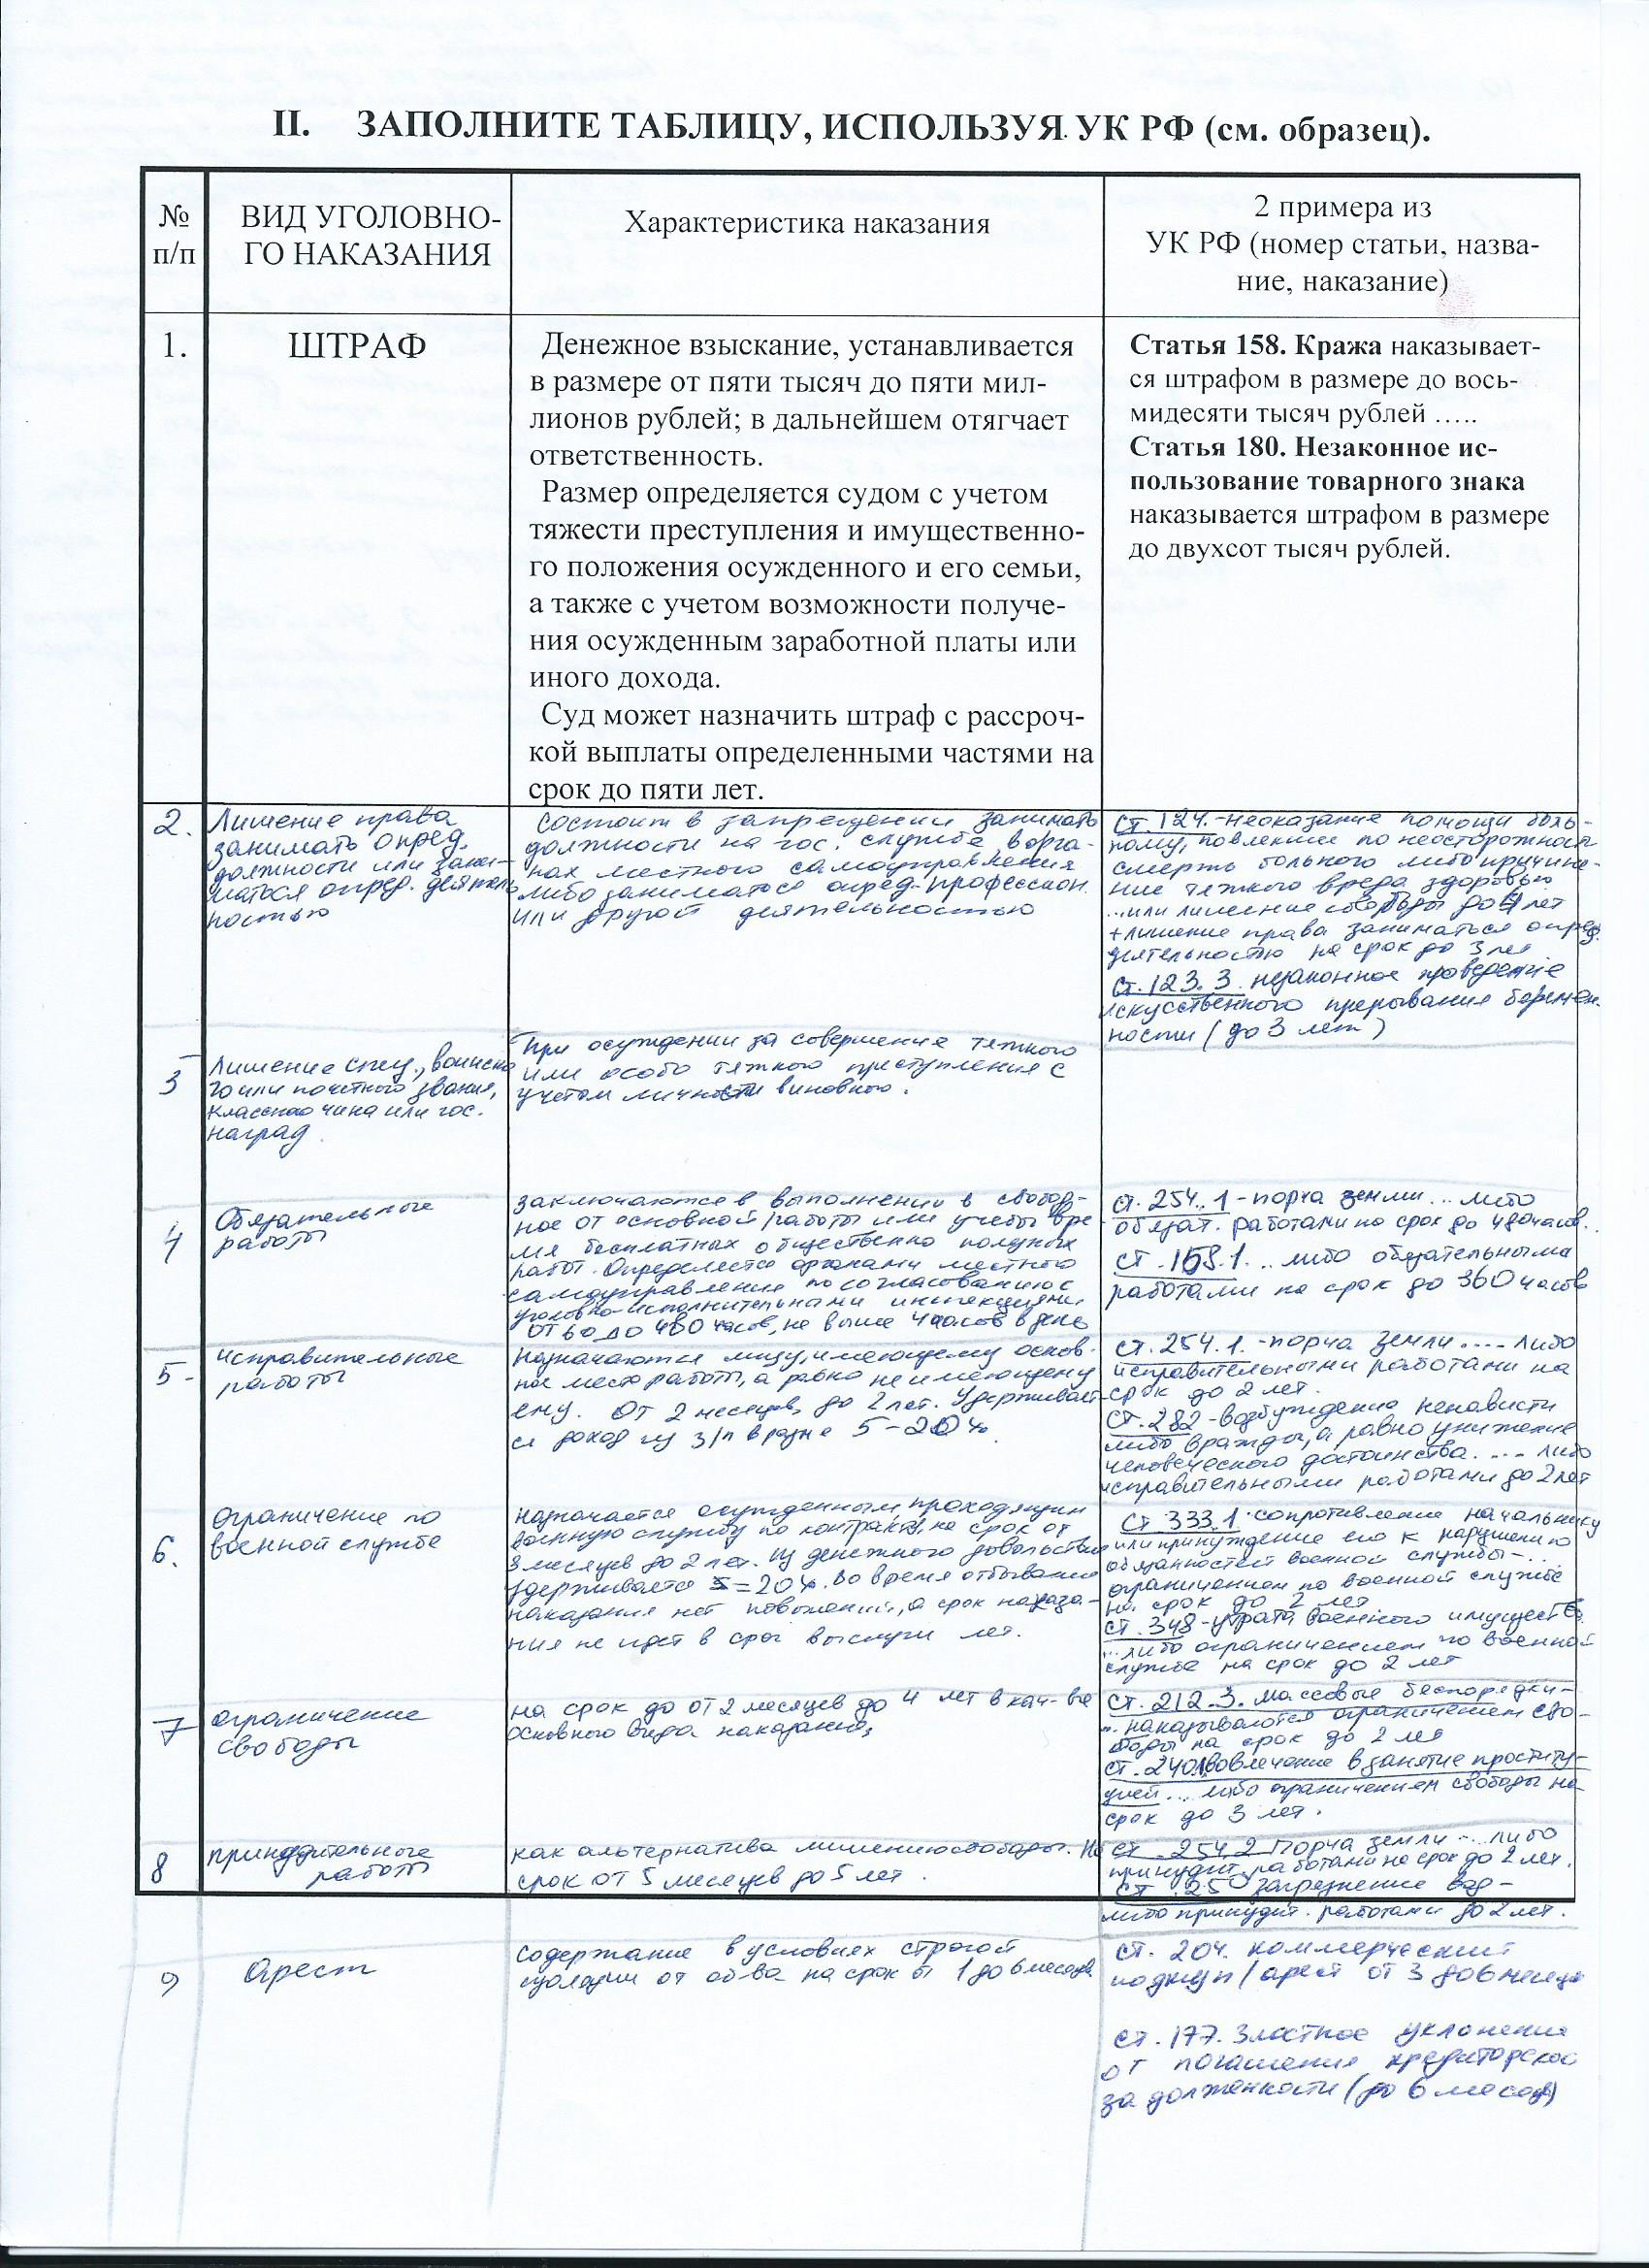 II. ЗАПОЛНИТЕ ТАБЛИЦУ, ИСПОЛЬЗУЯ УК РФ (см. образец).
№
п/п
ВИД УГОЛОВНО-
ГО НАКАЗАНИЯ
Характеристика наказания
2 примера из
УК РФ (номер статьи, назва-
ние, наказание)
1.
ШТРАФ
Денежное взыскание, устанавливается
в размере от пяти тысяч до пяти мил-
лионов рублей; в дальнейшем отягчает
ответственность.
Размер определяется судом с учетом
тяжести преступления и имущественно-
го положения осужденного и его семьи,
а также с учетом возможности получе-
ния осужденным заработной платы или
иного дохода.
Суд может назначить штраф с рассроч-
кой выплаты определенными частями на
срок до пяти лет.
Статья 158. Кража наказывает-
ся штрафом в размере до вось-
мидесяти тысяч рублей …..
Статья 180. Незаконное ис-
пользование товарного знака
наказывается штрафом в размере
до двухсот тысяч рублей.
2.
Лишение права
занимать опред.
должности или зани-
маться опред. деятель
ностью
состоит в запрещении занимать
должности на гос. службе, в орга-
нах местного самоуправления
либо заниматься опред. профессион.
или другой деятельностью
ст. 124. - неоказание помощи боль-
ному, повлекшие по неосторожности
смерть больного либо причине-
ние тяжкого вреда здоровью
...или лишение свободы до 4 лет
+ лишение права заниматься опред.
деятельностью на срок до 3 лет
ст. 123. 3. незаконное проведение
искусственного прерывания беремен.
ности (до 3 лет)
3
Лишение спец., воинско
го или почетного звания,
классного чина или гос.
наград.
При осуждении за совершение тяжкого
или особо тяжкого преступления с
учетом личности виновного.
4
Обязательные
работы
заключаются в выполнении в свобод-
ное от основной работы или учебы вре
мя бесплатных общественно полезных
работ. Определяется органами местного
самоуправления по согласованию с
уголовно-исполнительными инспекциями.
от 60 до 480 часов, не выше 4 часов в день
ст. 254. 1 - порча земли... либо
обязат. работами на срок до 480 часов.
ст. 158.1. .. либо обязательными
работами на срок до 360 часов
5-
исправительные
работы
Назначаются лицу, имеющему основ-
ное место работы, а равно не имеющему
ему. От 2 месяцев до 2 лет. Удерживает-
ся доход из з/п в разме 5-20%.
ст. 254. 1. - порча земли .... либо
исправительными работами на
срок до 2 лет.
ст. 282 - возбуждение ненависти
либо вражды, а равно унижение
человеческого достоинства. .... либо
исправительными работами до 2 лет
6.
Ограничение по
военной службе
Назначается осужденным, проходящим
военную службу по контракту, на срок от
3 месяцев до 2 лет. Из денежного довольствия
удерживается 20%. Во время отбывания
наказания нет повышений, а срок наказа-
ния не идет в срок выслуги лет.
ст 333.1 - сопротивление начальнику
или принуждение его к нарушению
обязанностей военной службы-...
ограничением по военной службе
на срок до 2 лет
ст. 348 - утрата военного имущества
...либо ограничением по военной
службе на срок до 2 лет
7
ограничение
свободы
на срок до от 2 месяцев до 4 лет в кач-ве
основного вида наказания;
ст. 212.3. массовые беспорядки-
.. наказываются ограничением сво-
боды на срок до 2 лет
ст. 240. вовлечение в занятие проститу-
цией... либо ограничением свободы на
срок до 3 лет.
8
принудительные
работы
как альтернатива лишению свободы. На
срок от 5 месяцев до 5 лет.
ст. 254.2 Порча земли ... либо
принудит. работами на срок до 2 лет.
ст. 250 загрязнение вод-
либо принудит. работами до 2 лет.
9
Арест
Содержание в условиях строгой
изоляции от об-ва на срок от 1 до 6 месяцев
ст. 204. коммерческий
подкуп / арест от 3 до 6 месяце
ст. 177. Злостное уклонение
от погашения кредиторской
задолженности (до 6 месяцев)